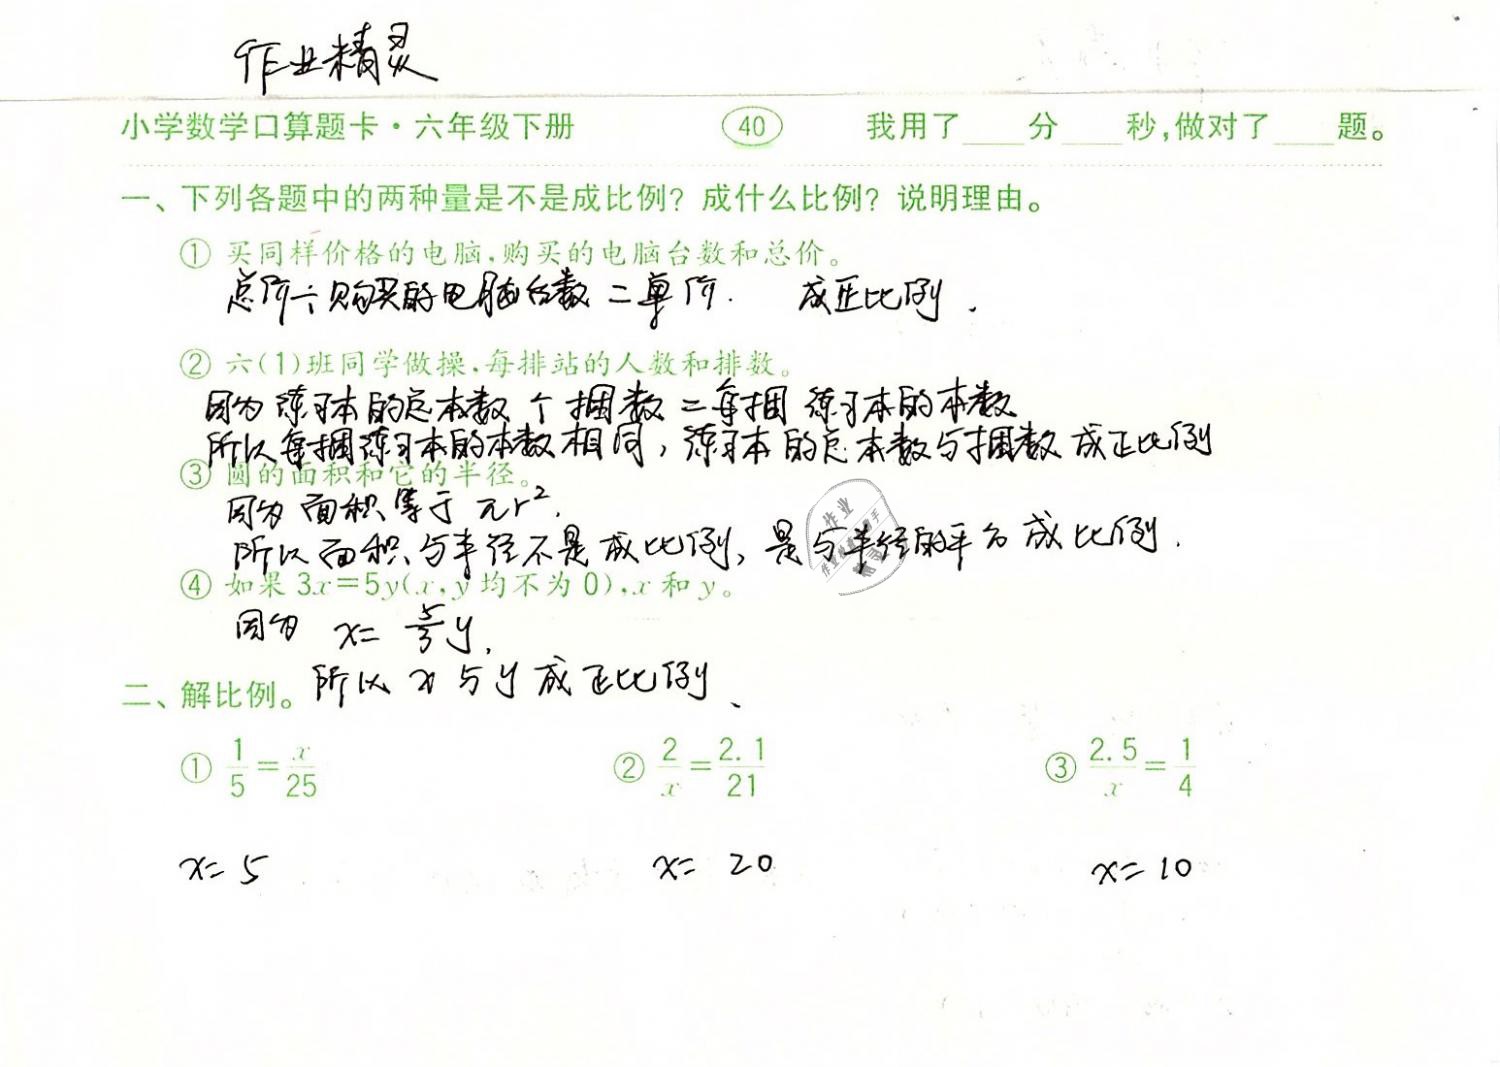 作业精灵
小学数学口算题卡·六年级下册 40 我用了____分____秒,做对了____题。
一、下列各题中的两种量是不是成比例?成什么比例?说明理由。
① 买同样价格的电脑,购买的电脑台数和总价。
总价÷购买的电脑台数=单价. 成正比例.
② 六(1)班同学做操,每排站的人数和排数。
因为练习本的总本数 个 捆数=每捆练习本的本数
所以每捆练习本的本数相同,练习本的总本数与捆数成正比例
③ 圆的面积和它的半径。
因为面积等于πr².
所以面积与半径不是成比例,是与半径的平方成比例.
④ 如果3x=5y(x,y均不为0),x和y。
因为 x=5/3 y,
所以x与y成正比例、
二、解比例。
① 1/5=x/25 ② 2/x=2.1/21 ③ 2.5/x=1/4
x=5 x=20 x=10